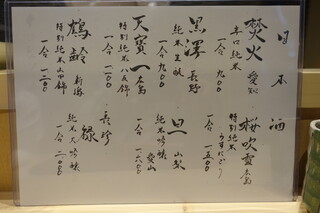 日本酒
焚火 愛知
辛口純米
一合 九〇〇
桜吹雪 広島
特別純米
うすにごり
一合 一五〇〇
黒澤 長野
純米 生酛
一合 九〇〇
旦 山梨
純米吟醸
一合
天寶一 広島
特別純米 八反錦
一合 一〇〇〇
緑
純米大吟醸
一合 二〇〇〇
鶴齢 新潟
特別純米 山田錦
一合 一三〇〇